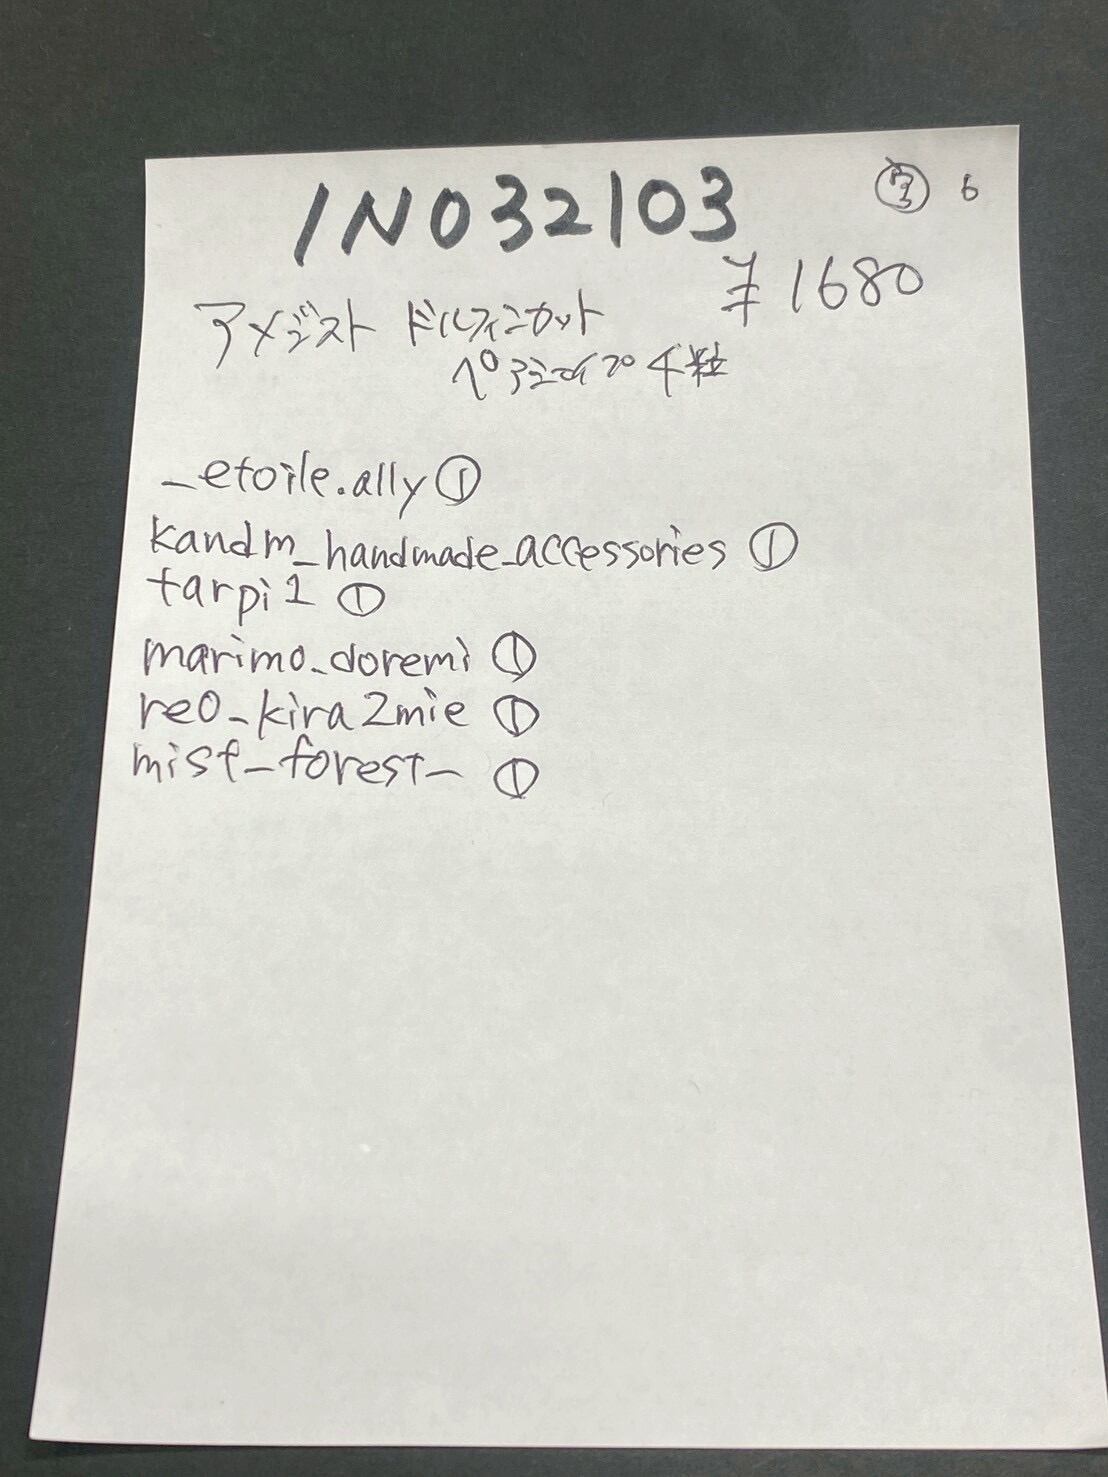 IN032103
6
¥1680
アメジスト ドルフィンカット
ペアシェイプ 4粒
_etoile.ally ①
kandm_handmade_accessories ①
tarpi1 ①
marimo_doremi ①
reo_kira2mie ①
mist_forest_ ①